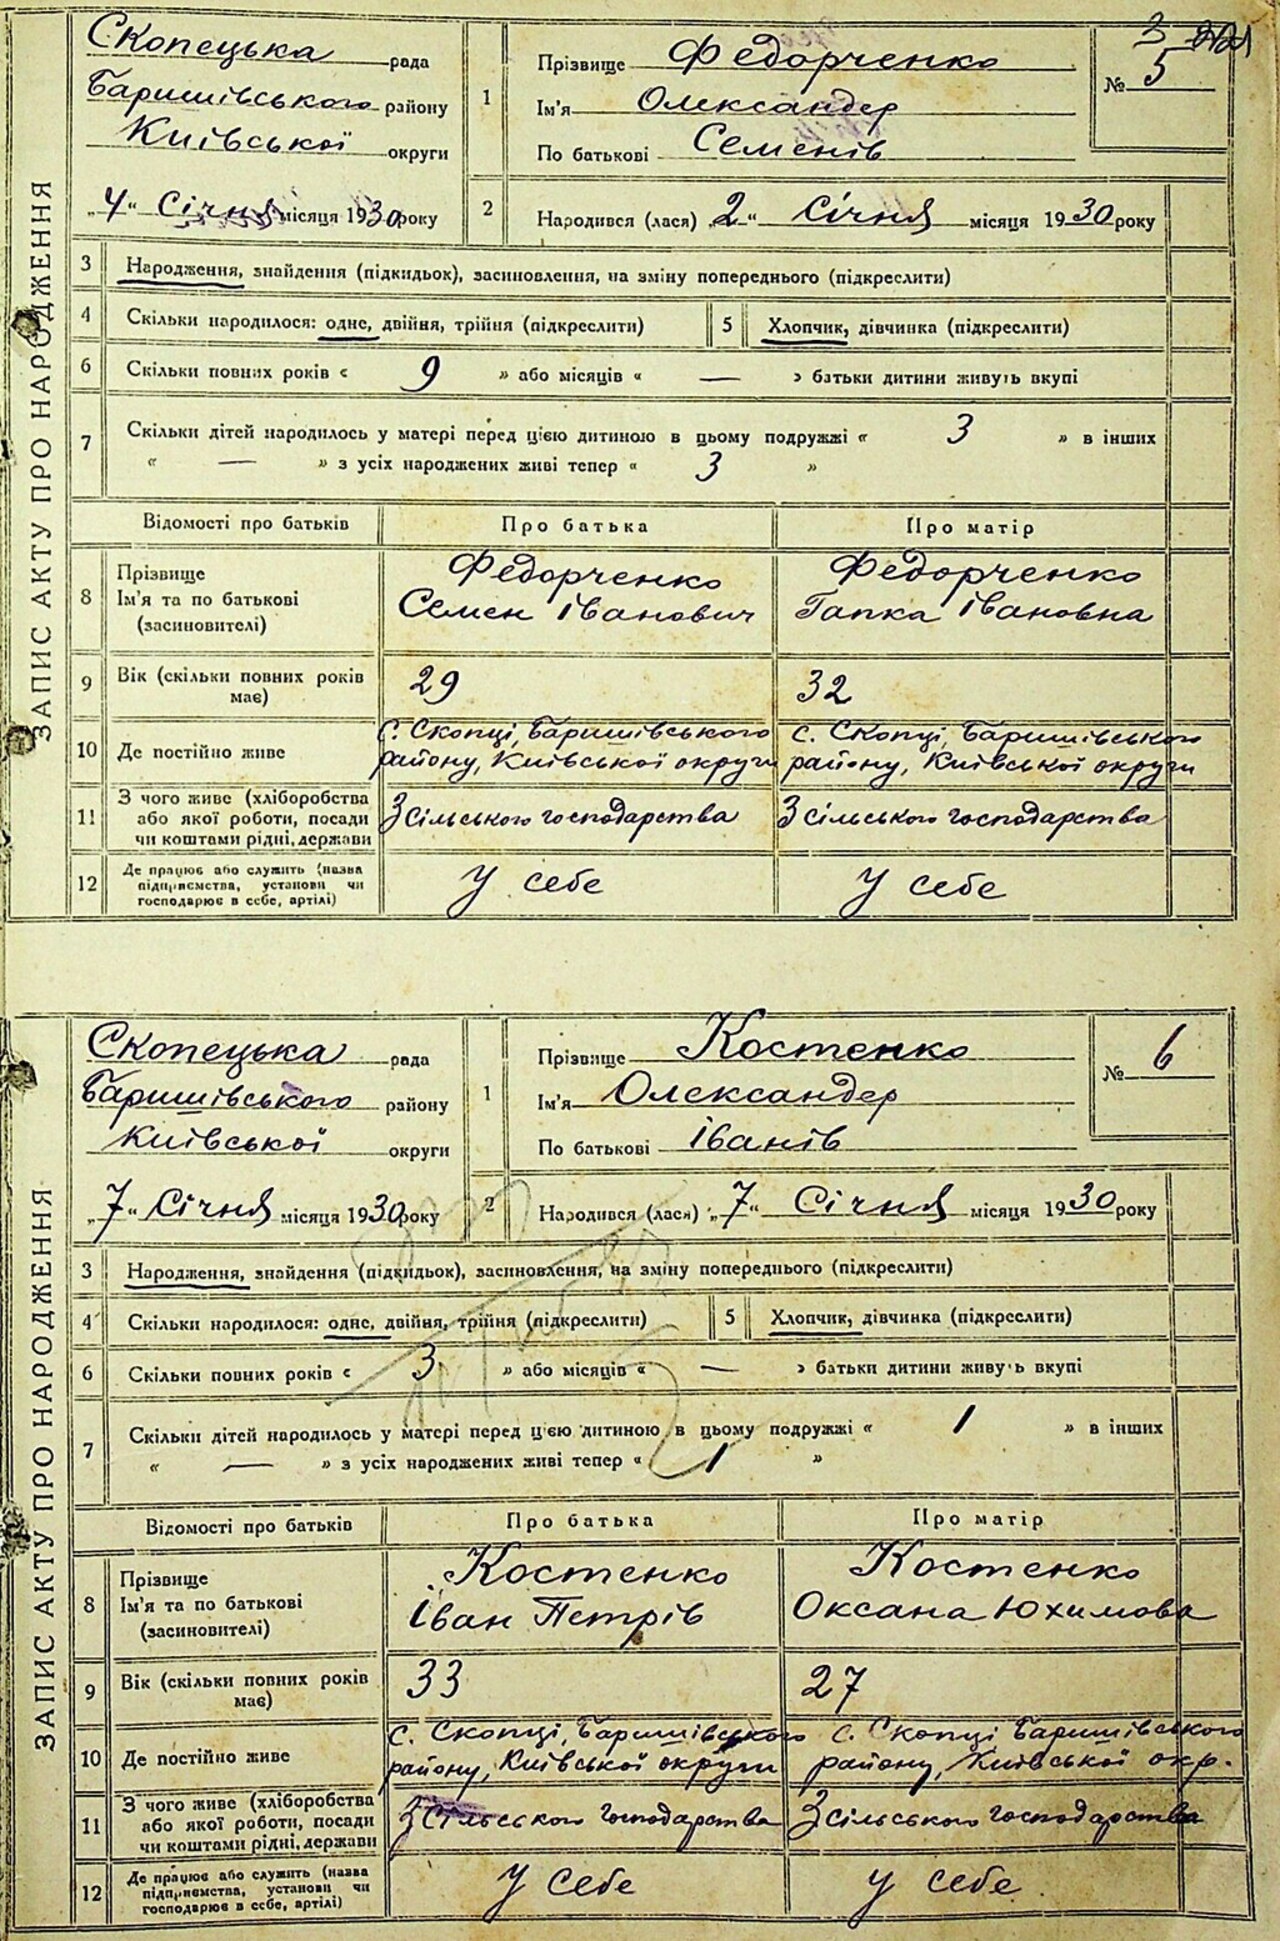 3
Скопецька рада
Баришівського району
Київської округи
„4“ Січня місяця 1930 року
1
Прізвище Федорченко
Ім'я Олександер
По батькові Семенів
№ 5
2
Народився (лася) „2“ Січня місяця 1930 року
ЗАПИС АКТУ ПРО НАРОДЖЕННЯ
3 Народження, знайдення (підкидьок), засиновлення, на зміну попереднього (підкреслити)
4 Скільки народилося: одне, двійня, трійня (підкреслити) 5 Хлопчик, дівчинка (підкреслити)
6 Скільки повних років « 9 » або місяців « — » батьки дитини живуть вкупі
7 Скільки дітей народилось у матері перед цією дитиною в цьому подружжі « 3 » в інших
« — » з усіх народжених живі тепер « 3 »
Відомості про батьків Про батька Про матір
8 Прізвище Федорченко Федорченко
Ім'я та по батькові Семен Іванович Гапка Івановна
(засиновителі)
9 Вік (скільки повних років має) 29 32
10 Де постійно живе с. Скопці, Баришівського с. Скопці, Баришівського
району, Київської округи району, Київської округи
11 З чого живе (хліборобства
або якої роботи, посади З сільського господарства З сільського господарства
чи коштами рідні, держави
12 Де працює або служить (назва
підприємства, установи чи У себе У себе
господарює в себе, артілі)
Скопецька рада
Баришівського району
Київської округи
„7“ Січня місяця 1930 року
1
Прізвище Костенко
Ім'я Олександер
По батькові Іванів
№ 6
2
Народився (лася) „7“ Січня місяця 1930 року
ЗАПИС АКТУ ПРО НАРОДЖЕННЯ
3 Народження, знайдення (підкидьок), засиновлення, на зміну попереднього (підкреслити)
4 Скільки народилося: одне, двійня, трійня (підкреслити) 5 Хлопчик, дівчинка (підкреслити)
6 Скільки повних років « 3 » або місяців « — » батьки дитини живуть вкупі
7 Скільки дітей народилось у матері перед цією дитиною в цьому подружжі « 1 » в інших
« — » з усіх народжених живі тепер « 1 »
Відомості про батьків Про батька Про матір
8 Прізвище Костенко Костенко
Ім'я та по батькові Іван Петрів Оксана Юхимова
(засиновителі)
9 Вік (скільки повних років має) 33 27
10 Де постійно живе с. Скопці, Баришівського с. Скопці, Баришівського
району, Київської округи району, Київської окр.
11 З чого живе (хліборобства
або якої роботи, посади З сільського господарства З сільського господарства
чи коштами рідні, держави
12 Де працює або служить (назва
підприємства, установи чи У себе У себе
господарює в себе, артілі)